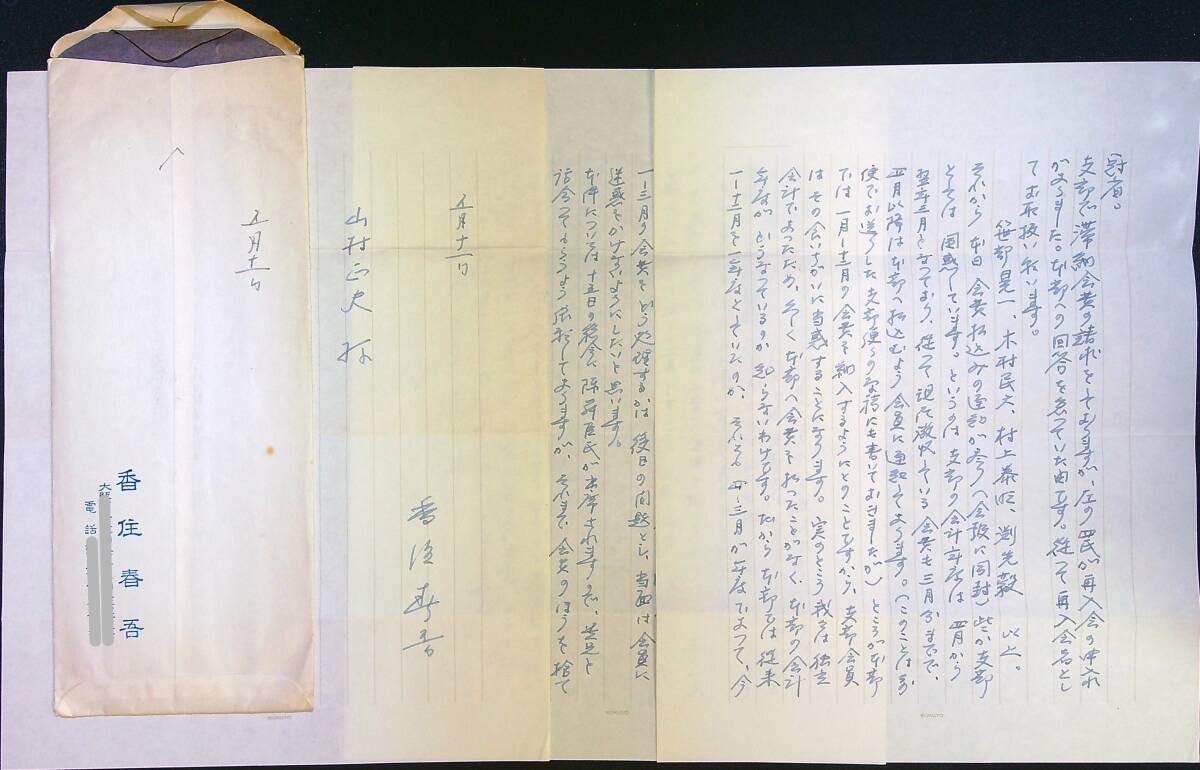 冠省。
支部で滞納会費の請求をしておりますが、左の四氏が再入会の申入れ
がありました。本部への回答を急いでいた由です。従って再入会者とし
てお取扱い願います。
笹部晃一、木村民夫、村上義昭、劉光毅 以上。
それから本日会費払込みの通知が参り(会報に同封)些か支部
としては困惑しています。というのは支部の会計年度は四月から
翌年三月となっており、従って現在徴収している会費も三月分までで、
四月以降は本部へ払込むよう会員に通知してあります。(このことは別
便でお送りした支部便りの原稿にも書いておきましたが)ところが本部
では一月―十二月の会費を納入するようにとのことですから、支部会員
はその食いちがいに当惑することになります。実のところ我々は独立
会計であったため、久しく本部へ会費を払ったことがなく、本部の会計
年度がどうなっているのか知らないわけです。だから本部では従来
一―十二月を一年度としていたのか、それとも四―三月が年度であって、今
一―三月の会費をどう処理するかは後日の問題とし、当面は会員に
迷惑をかけないようにしたいと思います。
本件については十五日の総会に陳舜臣氏が出席されますが、並足と
話合ってもらうよう依頼してありますが、それまで会費のほうを捨て
五月十一日
香住春吾
山村正夫様
五月十一日
香住春吾
大阪
電話
KOKUYO
KOKUYO
KOKUYO